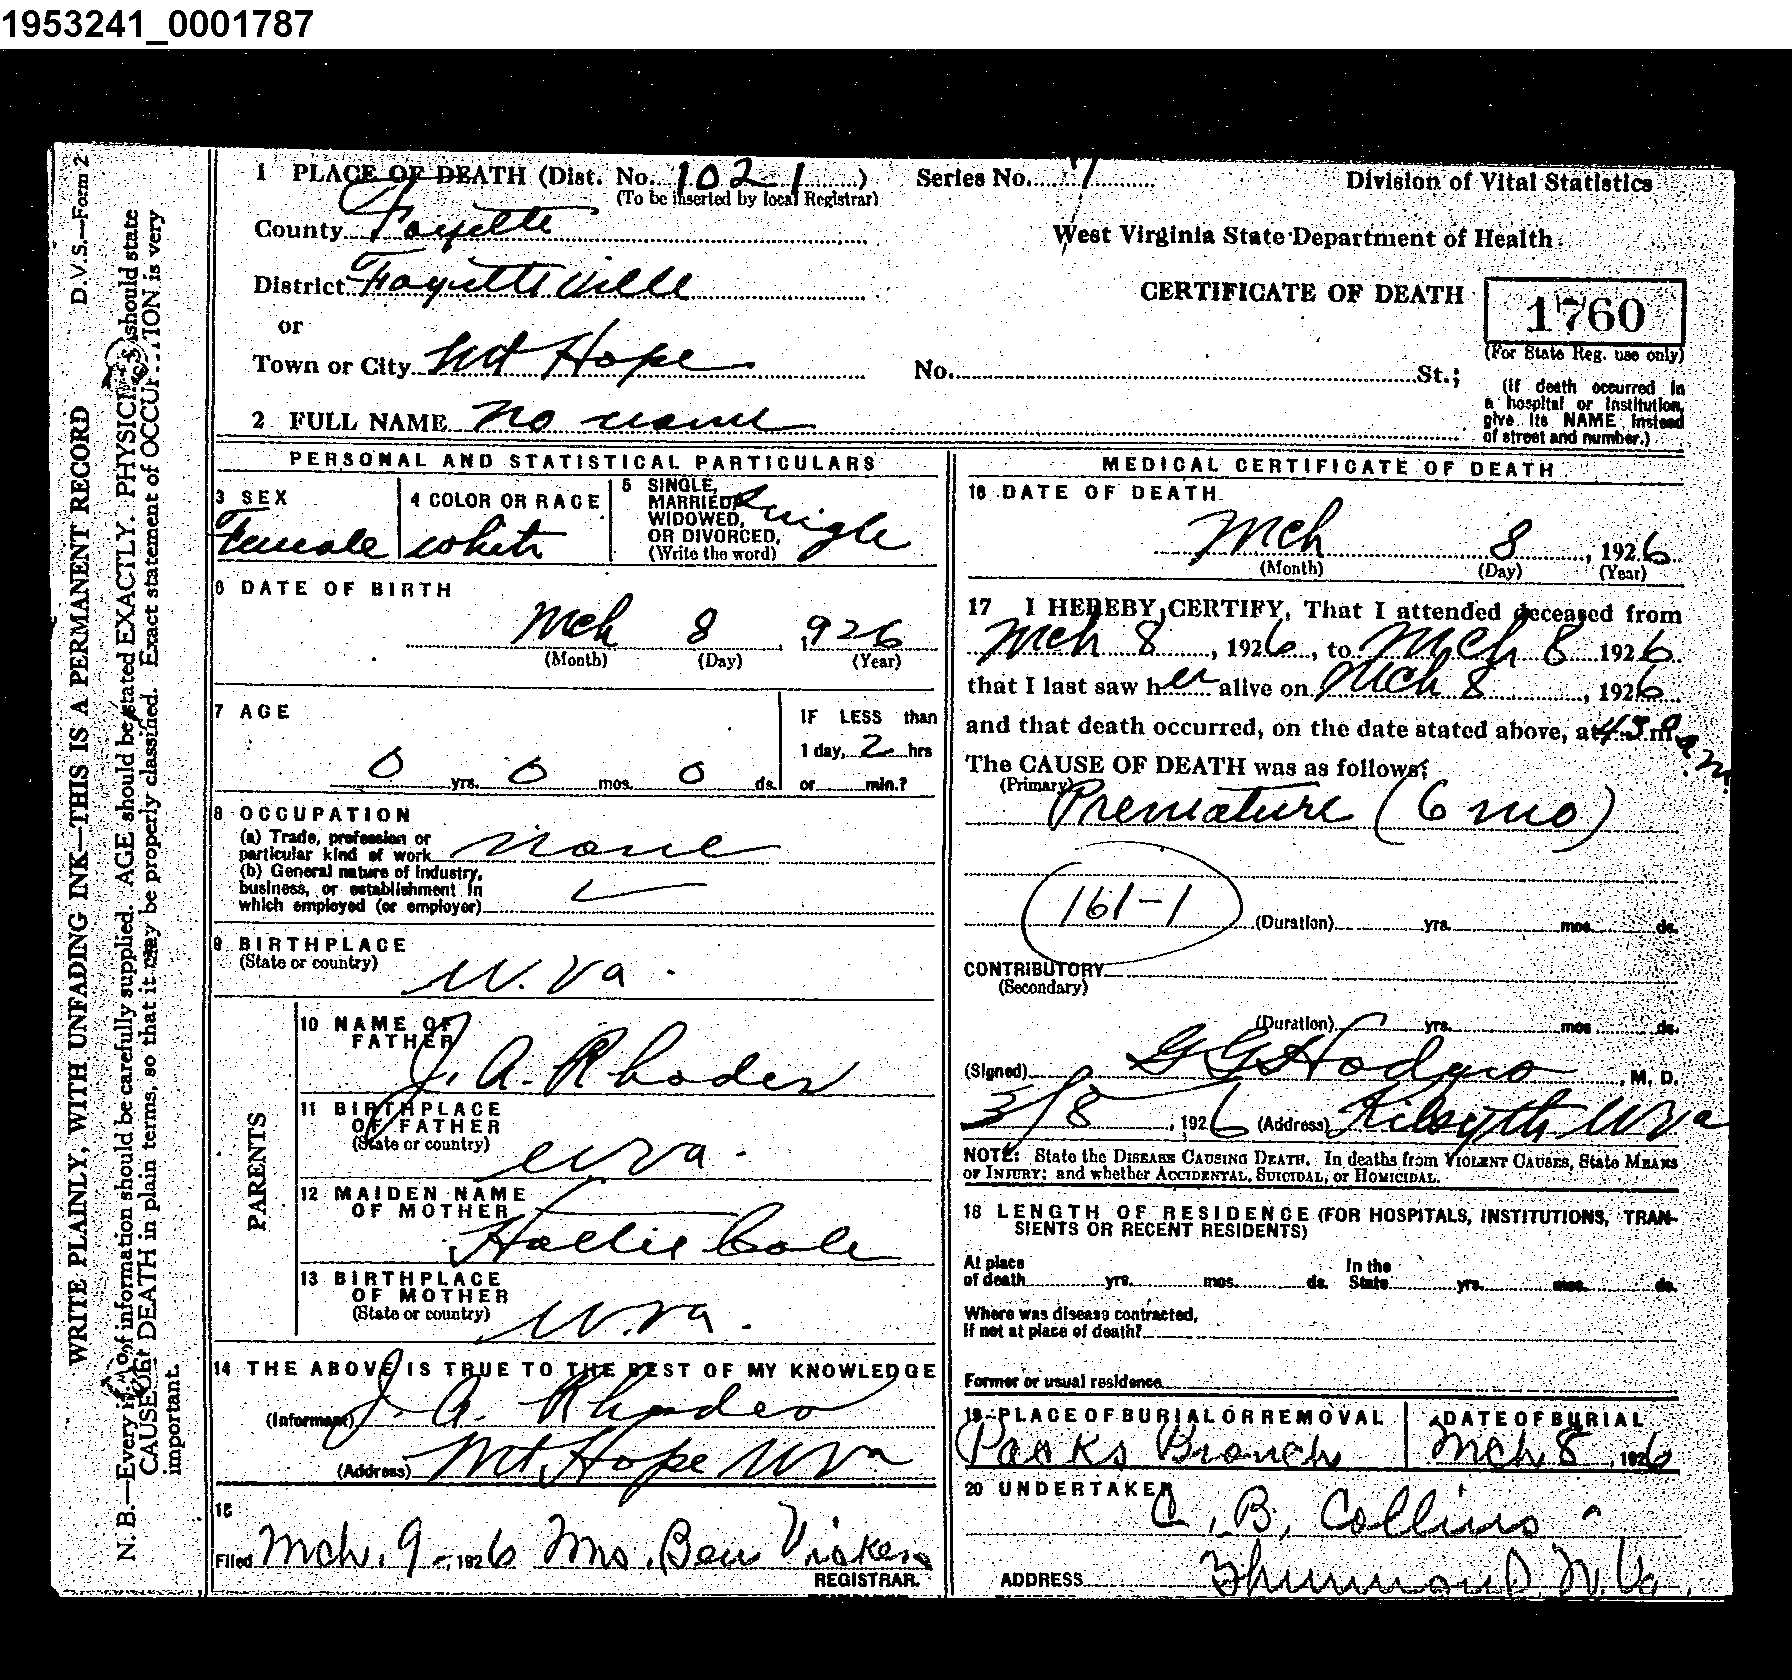 1953241_0001787
D.V.S.—Form 2
WRITE PLAINLY, WITH UNFADING INK—THIS IS A PERMANENT RECORD
N. B.—Every item of information should be carefully supplied. AGE should be stated EXACTLY. PHYSICIANS should state
CAUSE OF DEATH in plain terms, so that it may be properly classified. Exact statement of OCCUPATION is very
important.
1 PLACE OF DEATH (Dist. No. 102-1) Series No. 7 Division of Vital Statistics
(To be inserted by local Registrar)
County Fayette West Virginia State Department of Health
District Fayetteville CERTIFICATE OF DEATH 1760
or
(For State Reg. use only)
Town or City Mt Hope No. St.;
(If death occurred in
a hospital or institution,
give its NAME instead
of street and number.)
2 FULL NAME no name
PERSONAL AND STATISTICAL PARTICULARS
3 SEX Female
4 COLOR OR RACE white
5 SINGLE,
MARRIED,
WIDOWED,
OR DIVORCED,
(Write the word) Single
6 DATE OF BIRTH
Mch 8 1926
(Month) (Day) (Year)
7 AGE
0 yrs. 0 mos. 0 ds.
IF LESS than
1 day, 2 hrs
or min.?
8 OCCUPATION
(a) Trade, profession or
particular kind of work none
(b) General nature of industry,
business, or establishment in
which employed (or employer)
9 BIRTHPLACE
(State or country) W. Va.
PARENTS
10 NAME OF
FATHER J. A. Rhodes
11 BIRTHPLACE
OF FATHER
(State or country) W Va.
12 MAIDEN NAME
OF MOTHER Hallie Cole
13 BIRTHPLACE
OF MOTHER
(State or country) W. Va.
14 THE ABOVE IS TRUE TO THE BEST OF MY KNOWLEDGE
(Informant) J. A. Rhodes
(Address) Mt. Hope W Va
15
Filed Mch. 9 -, 1926 Mrs. Ben
REGISTRAR.
MEDICAL CERTIFICATE OF DEATH
16 DATE OF DEATH
Mch 8, 1926
(Month) (Day) (Year)
17 I HEREBY CERTIFY, That I attended deceased from
Mch 8, 1926, to Mch 8 1926
that I last saw her alive on Mch 8, 1926
and that death occurred, on the date stated above, at 4 30 m. a.m.
The CAUSE OF DEATH was as follows:
(Primary) Premature (6 mo)
161-1 (Duration) yrs. mos. ds.
CONTRIBUTORY
(Secondary)
(Duration) yrs. mos. ds.
(Signed) G G Hodges, M. D.
3/8, 1926 (Address) Kilsyth W Va
NOTE: State the DISEASE CAUSING DEATH. In deaths from VIOLENT CAUSES, State MEANS
OF INJURY; and whether ACCIDENTAL, SUICIDAL, or HOMICIDAL.
18 LENGTH OF RESIDENCE (FOR HOSPITALS, INSTITUTIONS, TRAN-
SIENTS OR RECENT RESIDENTS)
At place
of death yrs. mos. ds.
In the
State yrs. mos. ds.
Where was disease contracted,
If not at place of death?
Former or usual residence
19 PLACE OF BURIAL OR REMOVAL
Packs Branch
DATE OF BURIAL
Mch 8, 1926
20 UNDERTAKER C. B. Collins
ADDRESS Thurmond, W. Va.